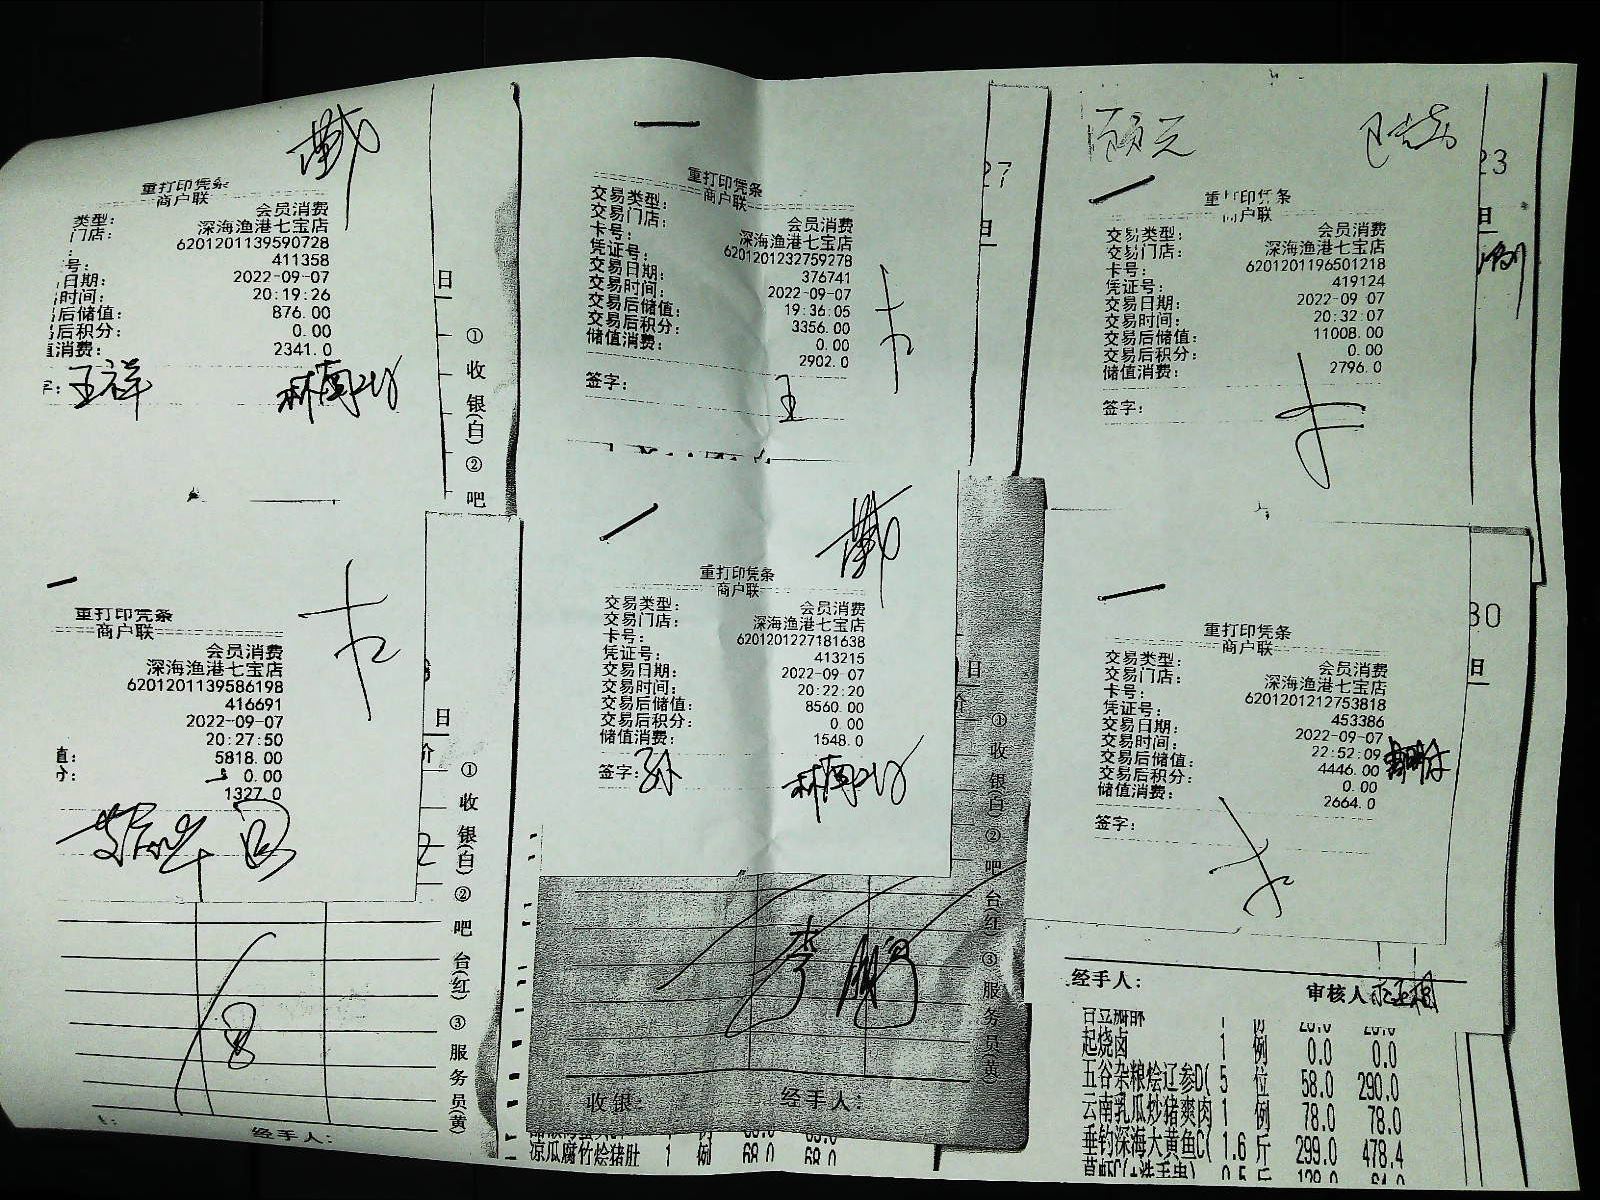 重打印凭条
商户联
类型： 会员消费
门店： 深海渔港七宝店
： 6201201139590728
号： 411358
日期： 2022-09-07
时间： 20:19:26
后储值： 876.00
后积分： 0.00
值消费： 2341.0
字： 王祥
日
①收银(白)②吧
重打印凭条
商户联
交易类型： 会员消费
交易门店： 深海渔港七宝店
卡号： 6201201232759278
凭证号： 376741
交易日期： 2022-09-07
交易时间： 19:36:05
交易后储值： 3356.00
交易后积分： 0.00
储值消费： 2902.0
签字： 王
卡
27
日
重打印凭条
商户联
交易类型： 会员消费
交易门店： 深海渔港七宝店
卡号： 6201201196501218
凭证号： 419124
交易日期： 2022-09-07
交易时间： 20:32:07
交易后储值： 11008.00
交易后积分： 0.00
储值消费： 2796.0
签字：
23
日
卡
重打印凭条
商户联
会员消费
深海渔港七宝店
6201201139586198
416691
2022-09-07
20:27:50
值： 5818.00
分： 0.00
1327.0
日
价
①收银(白)②吧台(红)③服务员(黄)
经手人：
重打印凭条
商户联
交易类型： 会员消费
交易门店： 深海渔港七宝店
卡号： 6201201227181638
凭证号： 413215
交易日期： 2022-09-07
交易时间： 20:22:20
交易后储值： 8560.00
交易后积分： 0.00
储值消费： 1548.0
签字： 孙
日
价
①收银(白)②吧台(红)③服务员(黄)
李
收银： 经手人：
凉瓜腐竹烩猪肚 1 例 68.0 68.0
重打印凭条
商户联
交易类型： 会员消费
交易门店： 深海渔港七宝店
卡号： 6201201212753818
凭证号： 453386
交易日期： 2022-09-07
交易时间： 22:52:09
交易后储值： 4446.00
交易后积分： 0.00
储值消费： 2664.0
签字：
30
日
经手人： 审核人
起烧卤 1 例 0.0 0.0
五谷杂粮烩辽参D( 5 位 58.0 290.0
云南乳瓜炒猪爽肉 1 例 78.0 78.0
垂钓深海大黄鱼C( 1.6 斤 299.0 478.4